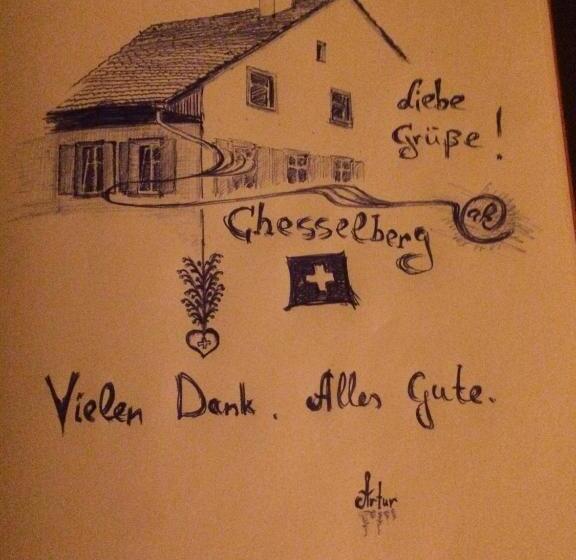 Liebe
Grüße!
Chesselberg
Vielen Dank. Alles Gute.
Artur